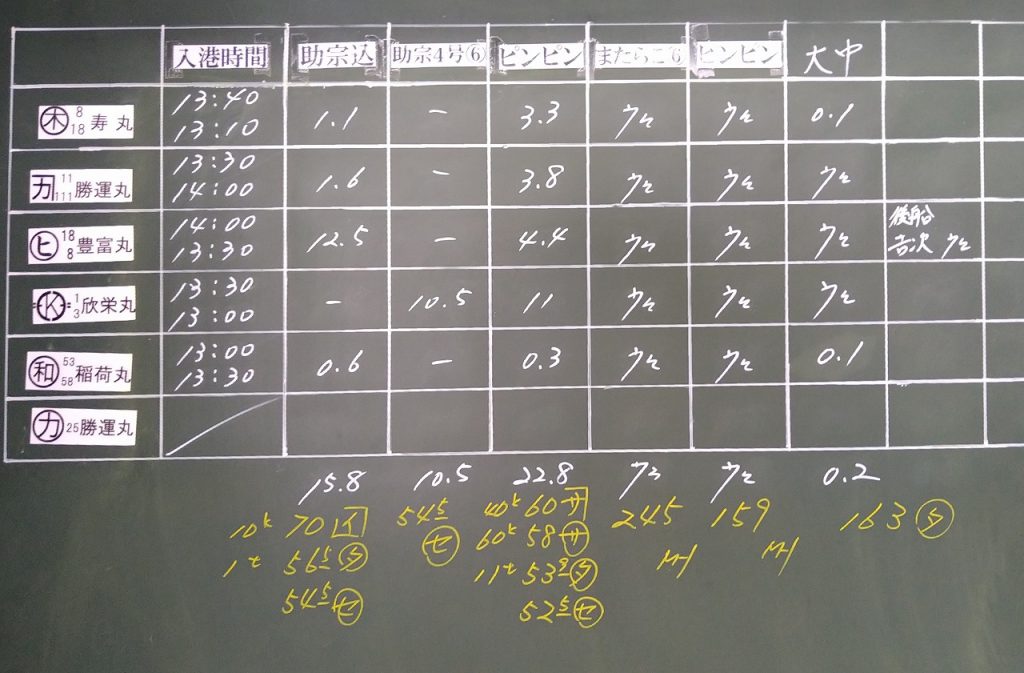 入港時間 助宗込 助宗4号⑥ ピンピン またらこ6 ピンピン 大中
㊍ 8 18 寿丸 13:40 13:10 1.1 ー 3.3 ウん ウん 0.1
カ 11 111 勝運丸 13:30 14:00 1.6 ー 3.8 ウん ウん ウん
ヒ 18 8 豊富丸 14:00 13:30 12.5 ー 4.4 ウん ウん ウん 後船 吉次 ウん
K 1 3 欣栄丸 13:30 13:00 ー 10.5 11 ウん ウん ウん
和 53 58 稲荷丸 13:00 13:30 0.6 ー 0.3 ウん ウん 0.1
カ 25 勝運丸
15.8 10.5 22.8 ウん ウん 0.2
10k 70 イ 54 5 セ 40k 60 サ 245 159 163 タ
1t 56 5 タ 60k 58 サ
54 5 セ 11t 53 9 タ
52 5 セ